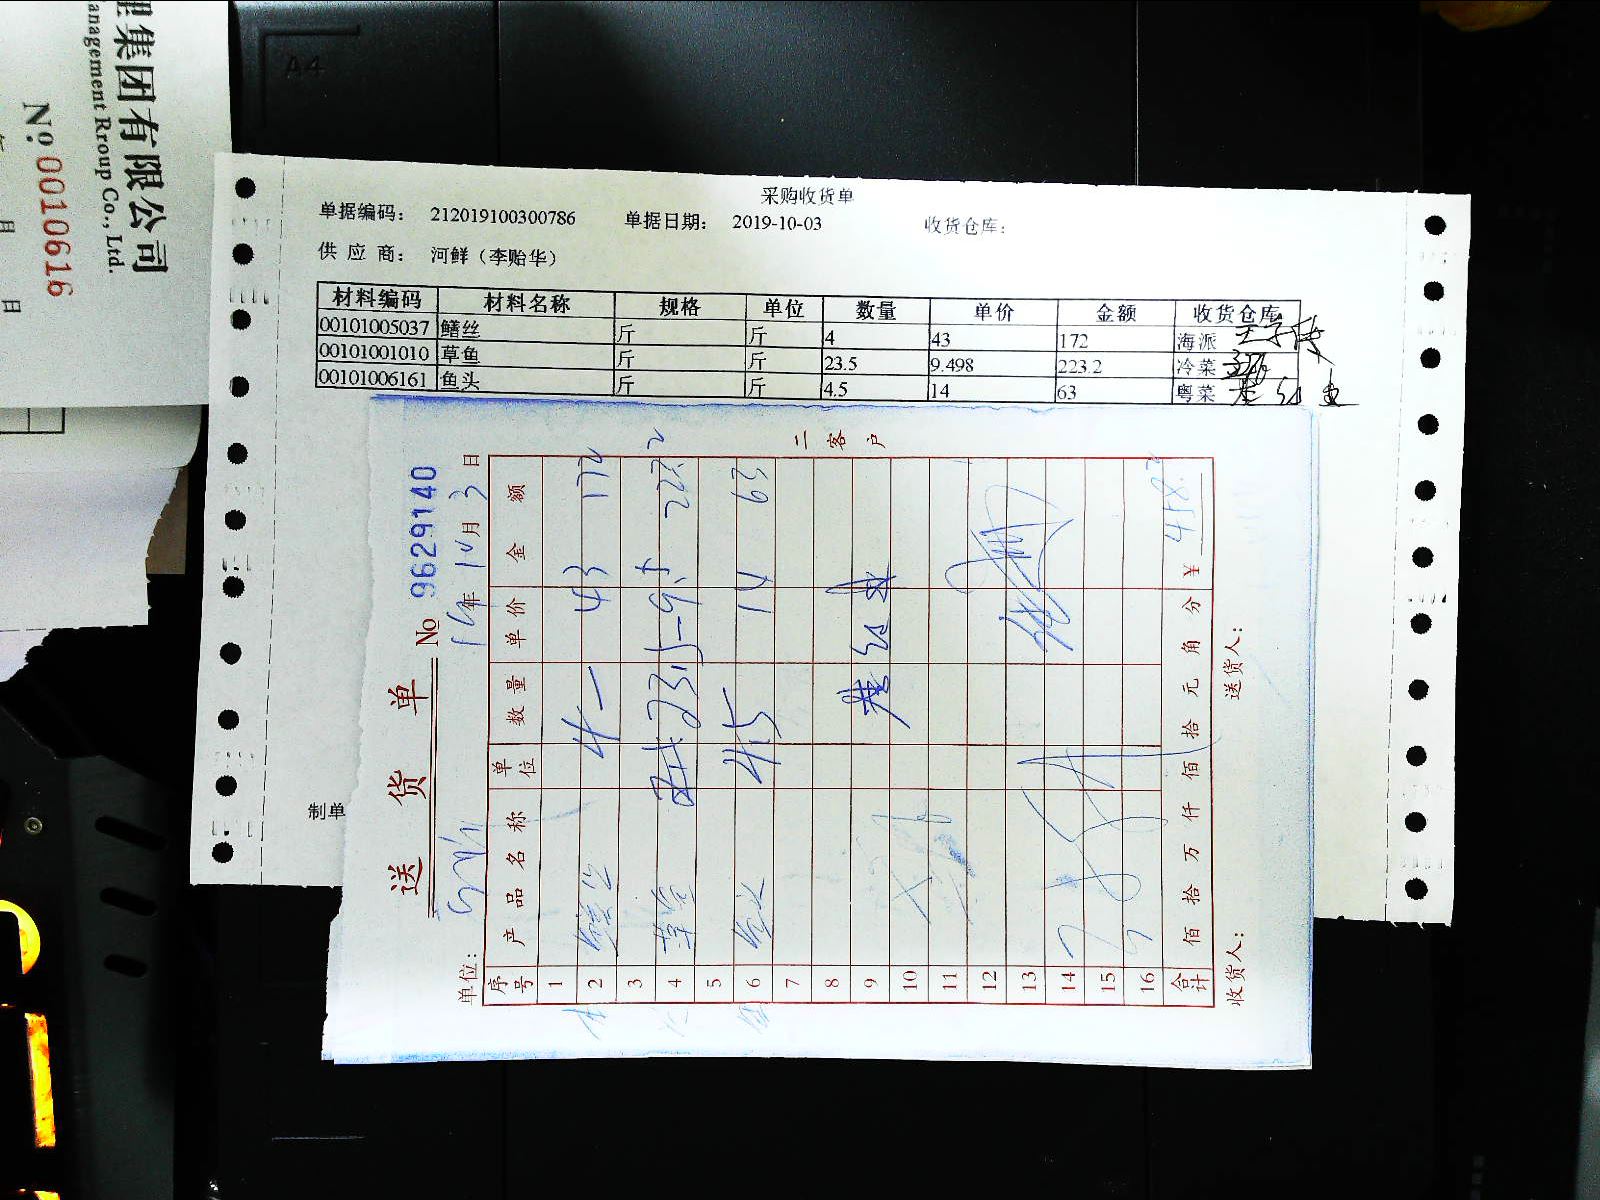 理集团有限公司
anagement Rroup Co., Ltd.
No 0010616
月 日
A4
采购收货单
单据编码： 212019100300786 单据日期： 2019-10-03 收货仓库：
供 应 商： 河鲜（李贻华）
材料编码 材料名称 规格 单位 数量 单价 金额 收货仓库
00101005037 鳝丝 斤 斤 4 43 172 海派
00101001010 草鱼 斤 斤 23.5 9.498 223.2 冷菜
00101006161 鱼头 斤 斤 4.5 14 63 粤菜
制单
送 货 单 No 9629140
单位： 年 10 月 3 日
序号 产品名称 单位 数量 单价 金额
1
2 鳝丝 4 43 172
3
4 草鱼 23.5 9.5 223.2
5
6 鱼头 4.5 14 63
7
8
9
10
11
12
13
14
15
16
合计 佰 拾 万 仟 佰 拾 元 角 分 ¥ 458.2
收货人： 送货人：
二 客 户